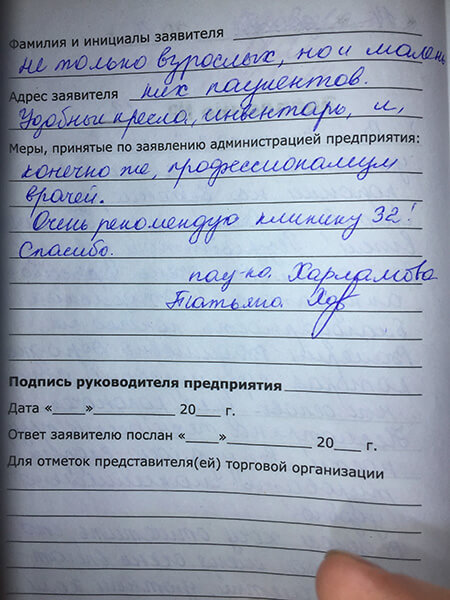 Фамилия и инициалы заявителя
не только взрослых, но и малень
Адрес заявителя ких пациентов.
Удобные кресла, инвентарь, и,
Меры, принятые по заявлению администрацией предприятия:
конечно же, профессионализм
врачей.
Очень рекомендую клинику 32!
Спасибо.
пац-ка. Харламова
Татьяна.
Подпись руководителя предприятия
Дата «____»____________ 20___ г.
Ответ заявителю послан «____»____________ 20___ г.
Для отметок представителя(ей) торговой организации